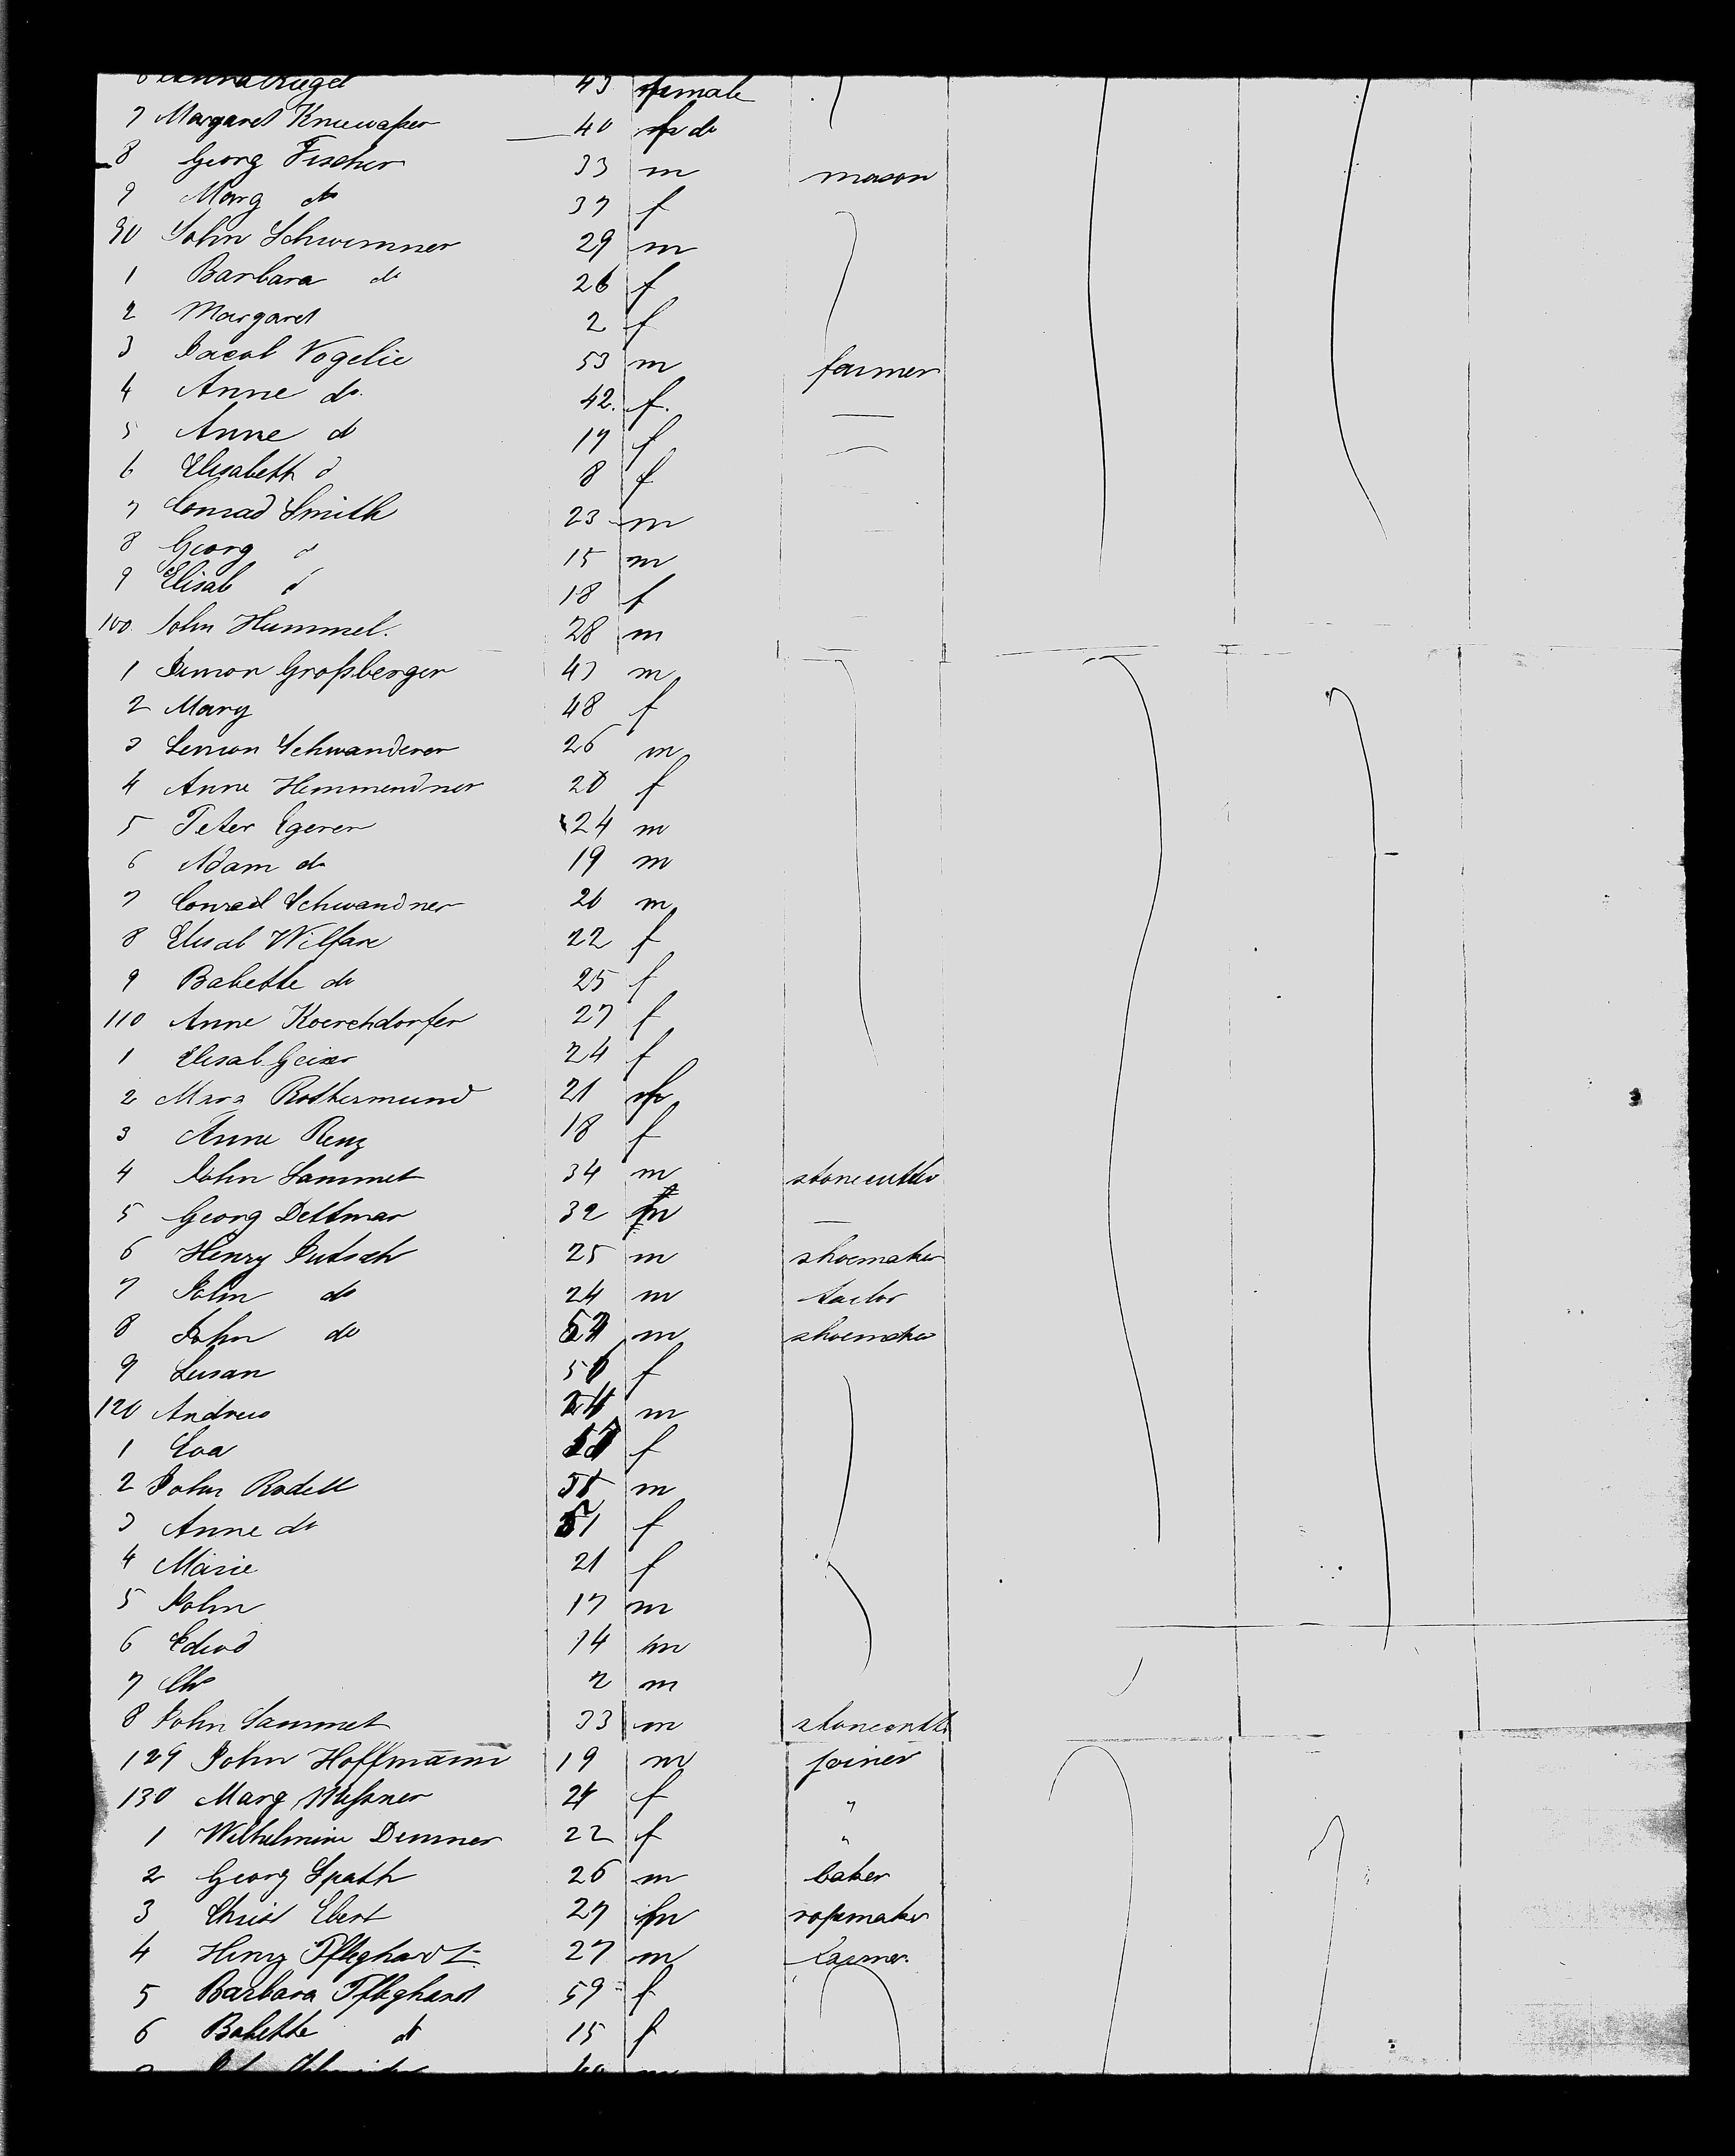 female
7 Margaret Kniewasser 40 f do
8 Georg Fischer 33 m mason
9 Marg do 37 f
90 John Schwemmer 29 m
1 Barbara do 26 f
2 Margaret 2 f
3 Jacob Vogelie 53 m farmer
4 Anne do. 42. f.
5 Anne do 17 f
6 Elisabeth d 8 f
7 Conrad Smith 23 m
8 Georg d 15 m
9 Elisab d 18 f
100. John Hummel. 28 m
1 Simon Großberger 47 m
2 Mary 48 f
3 Semon Schwanderer 26 m
4 Anne Hemmendner 20 f
5 Peter Egerer 24 m
6 Adam do 19 m
7 Conrad Schwandner 20 m
8 Elisab Wilfare 22 f
9 Babette do 25 f
110 Anne Koerchdorfer 27 f
1 Elisab Geiser 24 f
2 Marg Rothermund 21 f
3 Anne Renz 18 f
4 John Sammet 34 m stonecutter
5 Georg Dettmar 32 m —
6 Henry 25 m shoemaker
7 John do 24 m tailor
8 John do m shoemaker
9 Susan f
120 Andreas m
1 Eva f
2 John Rodell m
3 Anne do f
4 Marie 21 f
5 John 17 m
6 Edwd 14 m
7 Chr 2 m
8 John Sammet 33 m stonecutt
129 John Hoffmann 19 m joiner
130 Marg Meßner 24 f "
1 Wilhelmine Demmer 22 f "
2 Georg Spath 26 m baker
3 Christ Ebert 27 m ropemaker
4 Henry Pfleghardt 27 m farmer.
5 Barbara Pfleghardt 59 f
6 Babette do 15 f